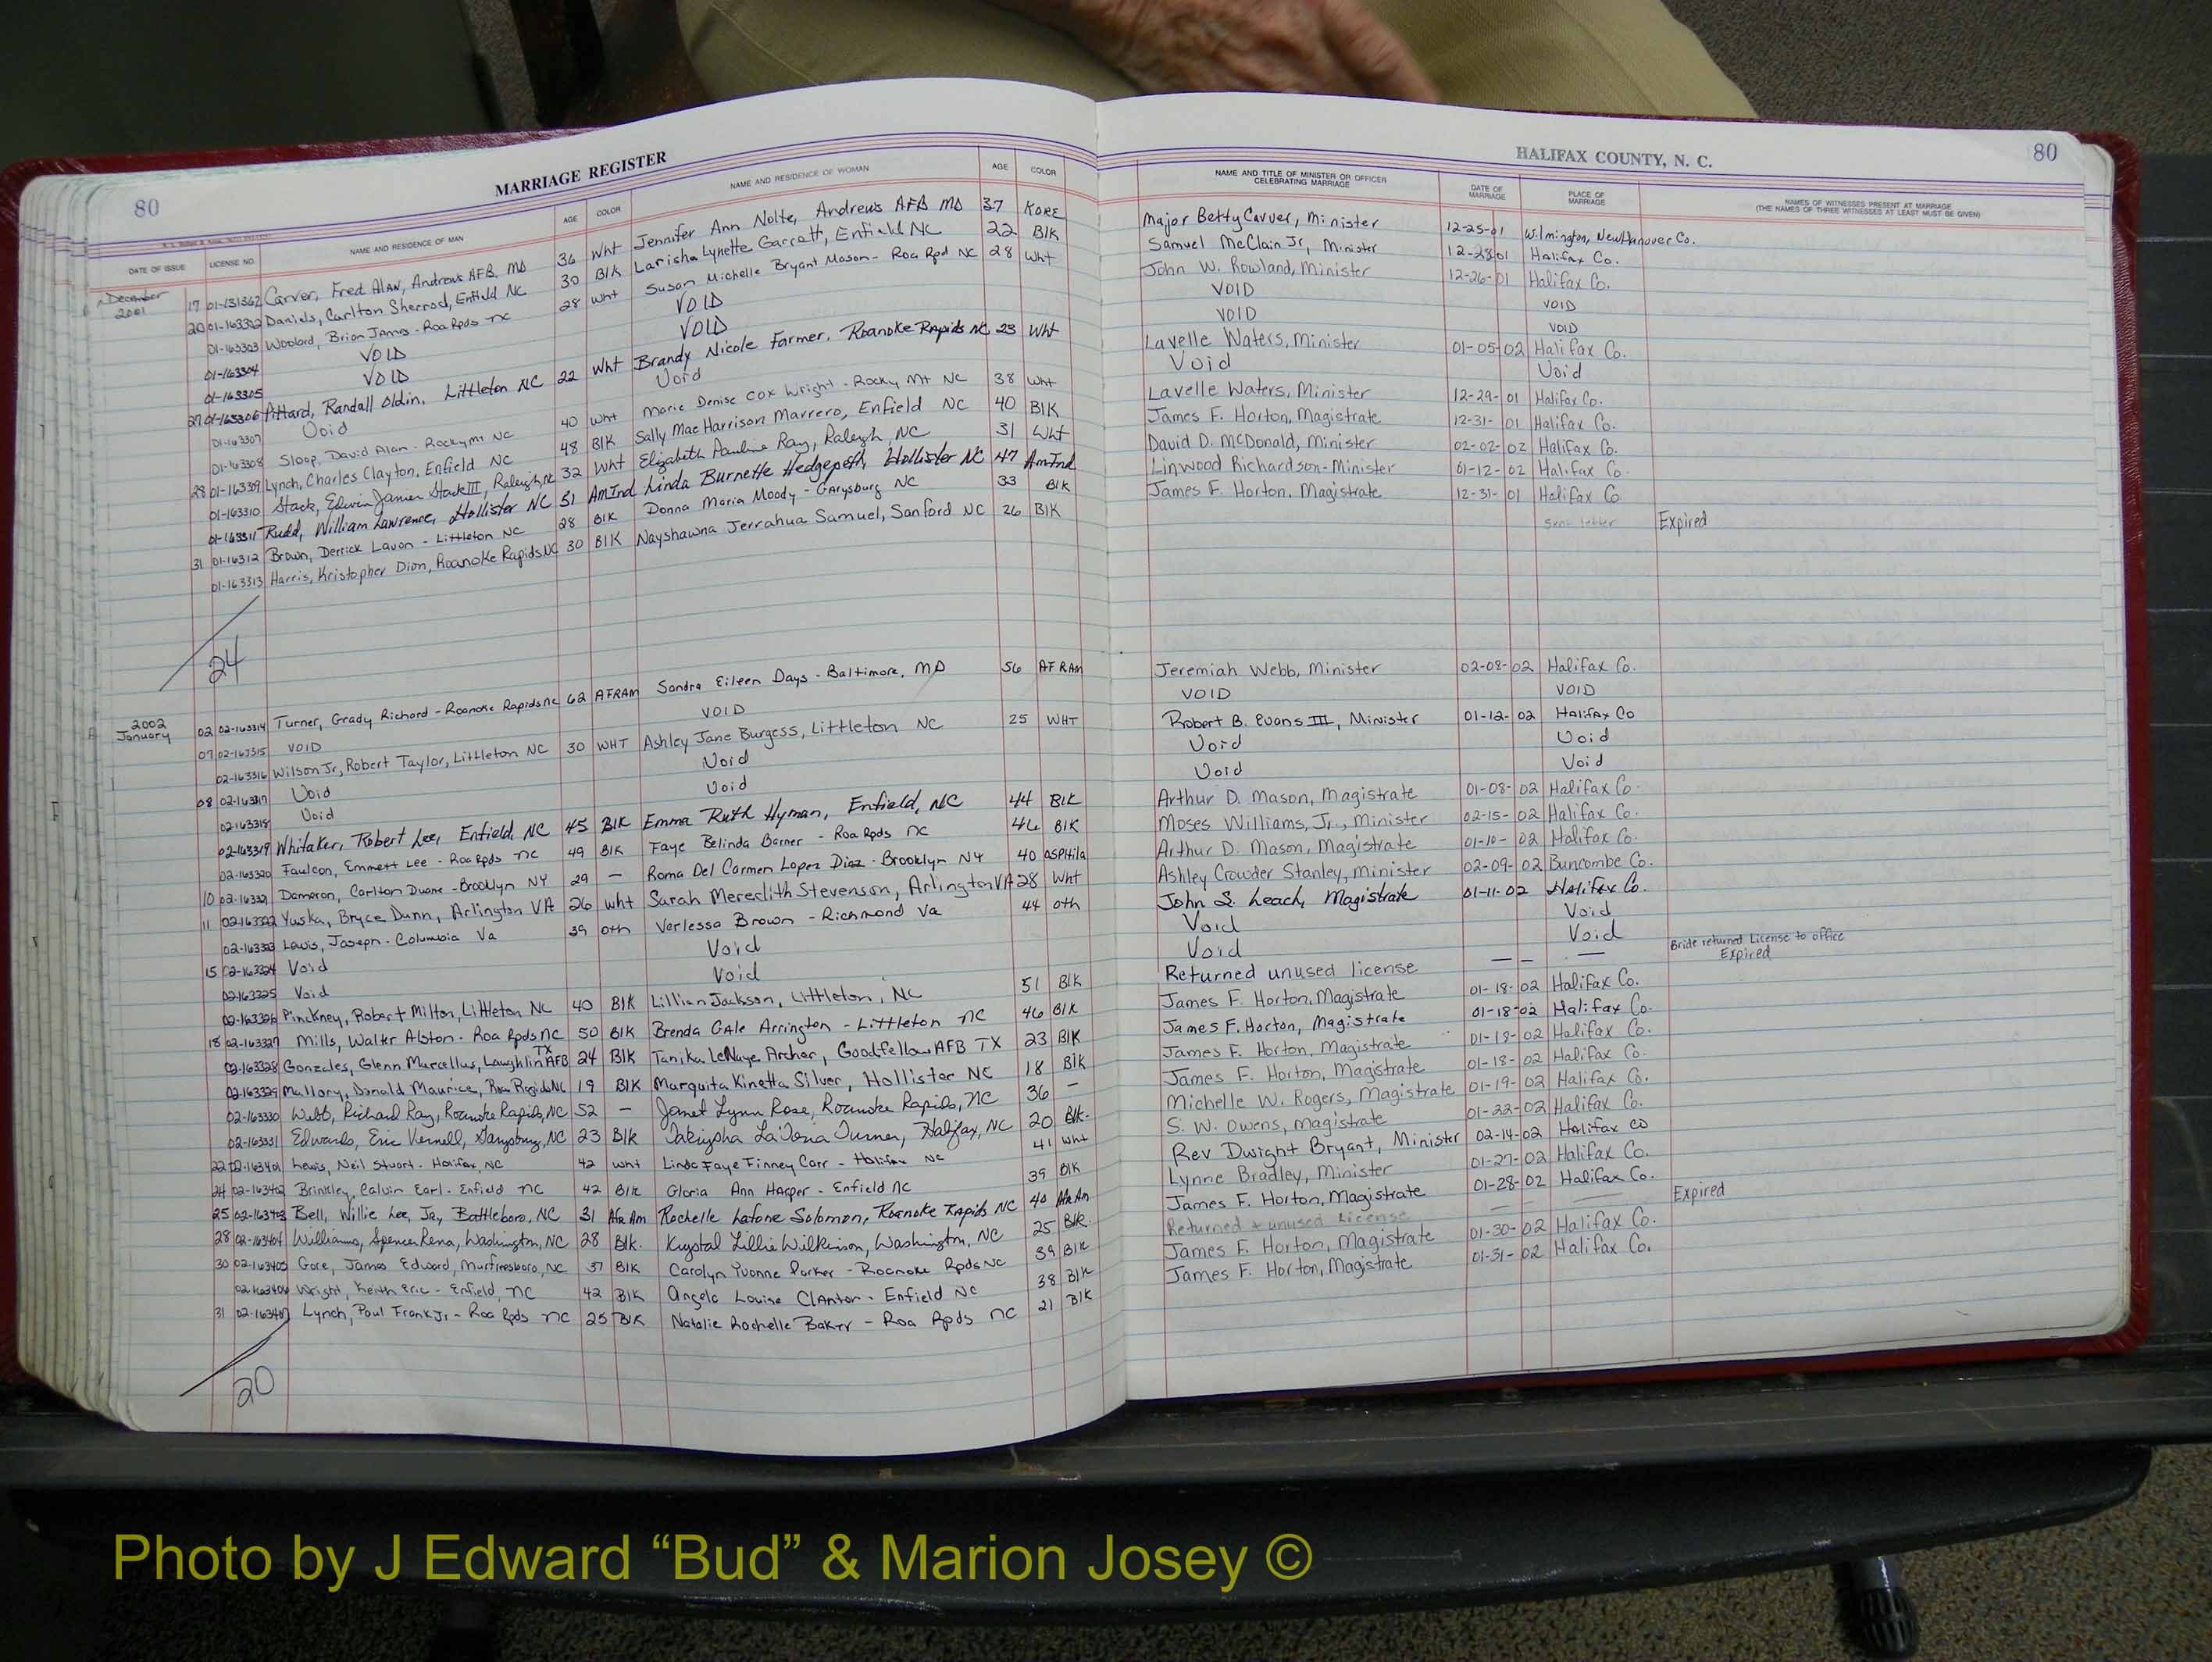 80 MARRIAGE REGISTER
DATE OF ISSUE LICENSE NO. NAME AND RESIDENCE OF MAN AGE COLOR NAME AND RESIDENCE OF WOMAN AGE COLOR
December 2001 17 01-131362 Carver, Fred Alan, Andrews AFB, MD 36 Wht Jennifer Ann Nolte, Andrews AFB MD 37 KORE
20 01-163302 Daniels, Carlton Sherrod, Enfield NC 30 Blk Larisha Lynette Garrett, Enfield NC 22 Blk
01-163303 Woolard, Brian James - Roa Rpds NC 28 Wht Susan Michelle Bryant Mason - Roa Rpd NC 28 Wht
01-163304 VOID VOID
01-163305 VOID VOID
27 01-163306 Pittard, Randall Oldin, Littleton NC 22 Wht Brandy Nicole Farmer, Roanoke Rapids NC 23 Wht
01-163307 Void Void
01-163308 Sloop, David Alan - Rocky Mt NC 40 Wht Marie Denise Cox Wright - Rocky Mt NC 38 Wht
28 01-163309 Lynch, Charles Clayton, Enfield NC 48 Blk Sally Mae Harrison Marrero, Enfield NC 40 Blk
01-163310 Stack, Edwin James Stack III, Raleigh, NC 32 Wht Elizabeth Pauline Ray, Raleigh, NC 31 Wht
01-163311 Rudd, William Lawrence, Hollister NC 51 AmInd Linda Burnette Hedgepeth, Hollister NC 47 AmInd
31 01-16312 Brown, Derrick Lavon - Littleton NC 28 Blk Donna Maria Moody - Garysburg NC 33 Blk
01-163313 Harris, Kristopher Dion, Roanoke Rapids NC 30 Blk Nayshawna Jerrahua Samuel, Sanford NC 26 Blk
24
2002 January 02 02-163314 Turner, Grady Richard - Roanoke Rapids NC 62 AFRAM Sondra Eileen Days - Baltimore, MD 56 AFRAM
07 02-163315 VOID VOID
02-163316 Wilson Jr, Robert Taylor, Littleton NC 30 WHT Ashley Jane Burgess, Littleton NC 25 WHT
08 02-163317 Void Void
02-163318 Void Void
02-163319 Whitaker, Robert Lee, Enfield, NC 45 Blk Emma Ruth Hyman, Enfield, NC 44 Blk
02-163320 Faulcon, Emmett Lee - Roa Rpds NC 49 Blk Faye Belinda Barner - Roa Rpds NC 46 Blk
10 02-163321 Dameron, Carlton Duane - Brooklyn NY 29 — Roma Del Carmen Lopez Diaz - Brooklyn NY 40
11 02-163322 Yuska, Bryce Dunn, Arlington VA 26 Wht Sarah Meredith Stevenson, Arlington VA 28 Wht
02-163323 Lewis, Joseph - Columbia Va 39 oth Verlessa Brown - Richmond Va 44 oth
15 02-163324 Void Void
02-163325 Void Void
02-163326 Pinckney, Robert Milton, Littleton NC 40 Blk Lillian Jackson, Littleton, NC 51 Blk
18 02-163327 Mills, Walter Alston - Roa Rpds NC 50 Blk Brenda Gale Arrington - Littleton NC 46 Blk
02-163328 Gonzales, Glenn Marcellus, Laughlin AFB TX 24 Blk Tanika LeNaye Archer, Goodfellow AFB TX 23 Blk
02-163329 Mallory, Donald Maurice, Roa Rapids NC 19 Blk Marquita Kinetta Silver, Hollister NC 18 Blk
02-163330 Webb, Richard Ray, Roanoke Rapids, NC 52 — Janet Lynn Rose, Roanoke Rapids, NC 36 —
02-163331 Edwards, Eric Vernell, Garysburg, NC 23 Blk Turner, Halifax, NC 20 Blk.
22 02-163401 Lewis, Neil Stuart - Halifax, NC 42 Wht Linda Faye Finney Carr - Halifax NC 41 Wht
24 02-163402 Brinkley, Calvin Earl - Enfield NC 42 Blk Gloria Ann Harper - Enfield NC 39 Blk
25 02-163403 Bell, Willie Lee, Jr, Battleboro, NC 31 Afr Am Rochelle Lafone Solomon, Roanoke Rapids NC 40 Afr Am
28 02-163404 Williams, Spencer Rena, Washington, NC 28 Blk. Krystal Lillie Wilkinson, Washington, NC 25 Blk.
30 02-163405 Gore, James Edward, Murfreesboro, NC 37 Blk Carolyn Yvonne Parker - Roanoke Rpds NC 39 Blk
02-163406 Wright, Keith Eric - Enfield, NC 42 Blk Angela Louise Clanton - Enfield NC 38 Blk
31 02-163407 Lynch, Paul Frank Jr - Roa Rpds NC 25 Blk Natalie Rochelle Baker - Roa Rpds NC 21 Blk
20
HALIFAX COUNTY, N. C. 80
NAME AND TITLE OF MINISTER OR OFFICER CELEBRATING MARRIAGE DATE OF MARRIAGE PLACE OF MARRIAGE NAMES OF WITNESSES PRESENT AT MARRIAGE (THE NAMES OF THREE WITNESSES AT LEAST MUST BE GIVEN)
Major Betty Carver, Minister 12-25-01 Wilmington, New Hanover Co.
Samuel McClain Jr, Minister 12-28-01 Halifax Co.
John W. Rowland, Minister 12-26-01 Halifax Co.
VOID VOID
VOID VOID
Lavelle Waters, Minister 01-05-02 Halifax Co.
Void Void
Lavelle Waters, Minister 12-29-01 Halifax Co.
James F. Horton, Magistrate 12-31-01 Halifax Co.
David D. McDonald, Minister 02-02-02 Halifax Co.
Linwood Richardson - Minister 01-12-02 Halifax Co.
James F. Horton, Magistrate 12-31-01 Halifax Co
Sent letter Expired
Jeremiah Webb, Minister 02-08-02 Halifax Co.
VOID VOID
Robert B. Evans III, Minister 01-12-02 Halifax Co
Void Void
Void Void
Arthur D. Mason, Magistrate 01-08-02 Halifax Co.
Moses Williams, Jr., Minister 02-15-02 Halifax Co.
Arthur D. Mason, Magistrate 01-10-02 Halifax Co.
Ashley Crowder Stanley, Minister 02-09-02 Buncombe Co.
John L. Leach, Magistrate 01-11-02 Halifax Co.
Void Void
Void Void
Returned unused license — — — Bride returned License to office Expired
James F. Horton, Magistrate 01-18-02 Halifax Co.
James F. Horton, Magistrate 01-18-02 Halifax Co.
James F. Horton, Magistrate 01-18-02 Halifax Co.
James F. Horton, Magistrate 01-18-02 Halifax Co.
Michelle W. Rogers, Magistrate 01-19-02 Halifax Co.
S. W. Owens, Magistrate 01-22-02 Halifax Co.
Rev Dwight Bryant, Minister 02-14-02 Halifax Co
Lynne Bradley, Minister 01-27-02 Halifax Co.
James F. Horton, Magistrate 01-28-02 Halifax Co.
Returned + unused license — — Expired
James F. Horton, Magistrate 01-30-02 Halifax Co.
James F. Horton, Magistrate 01-31-02 Halifax Co.
Photo by J Edward “Bud” & Marion Josey ©